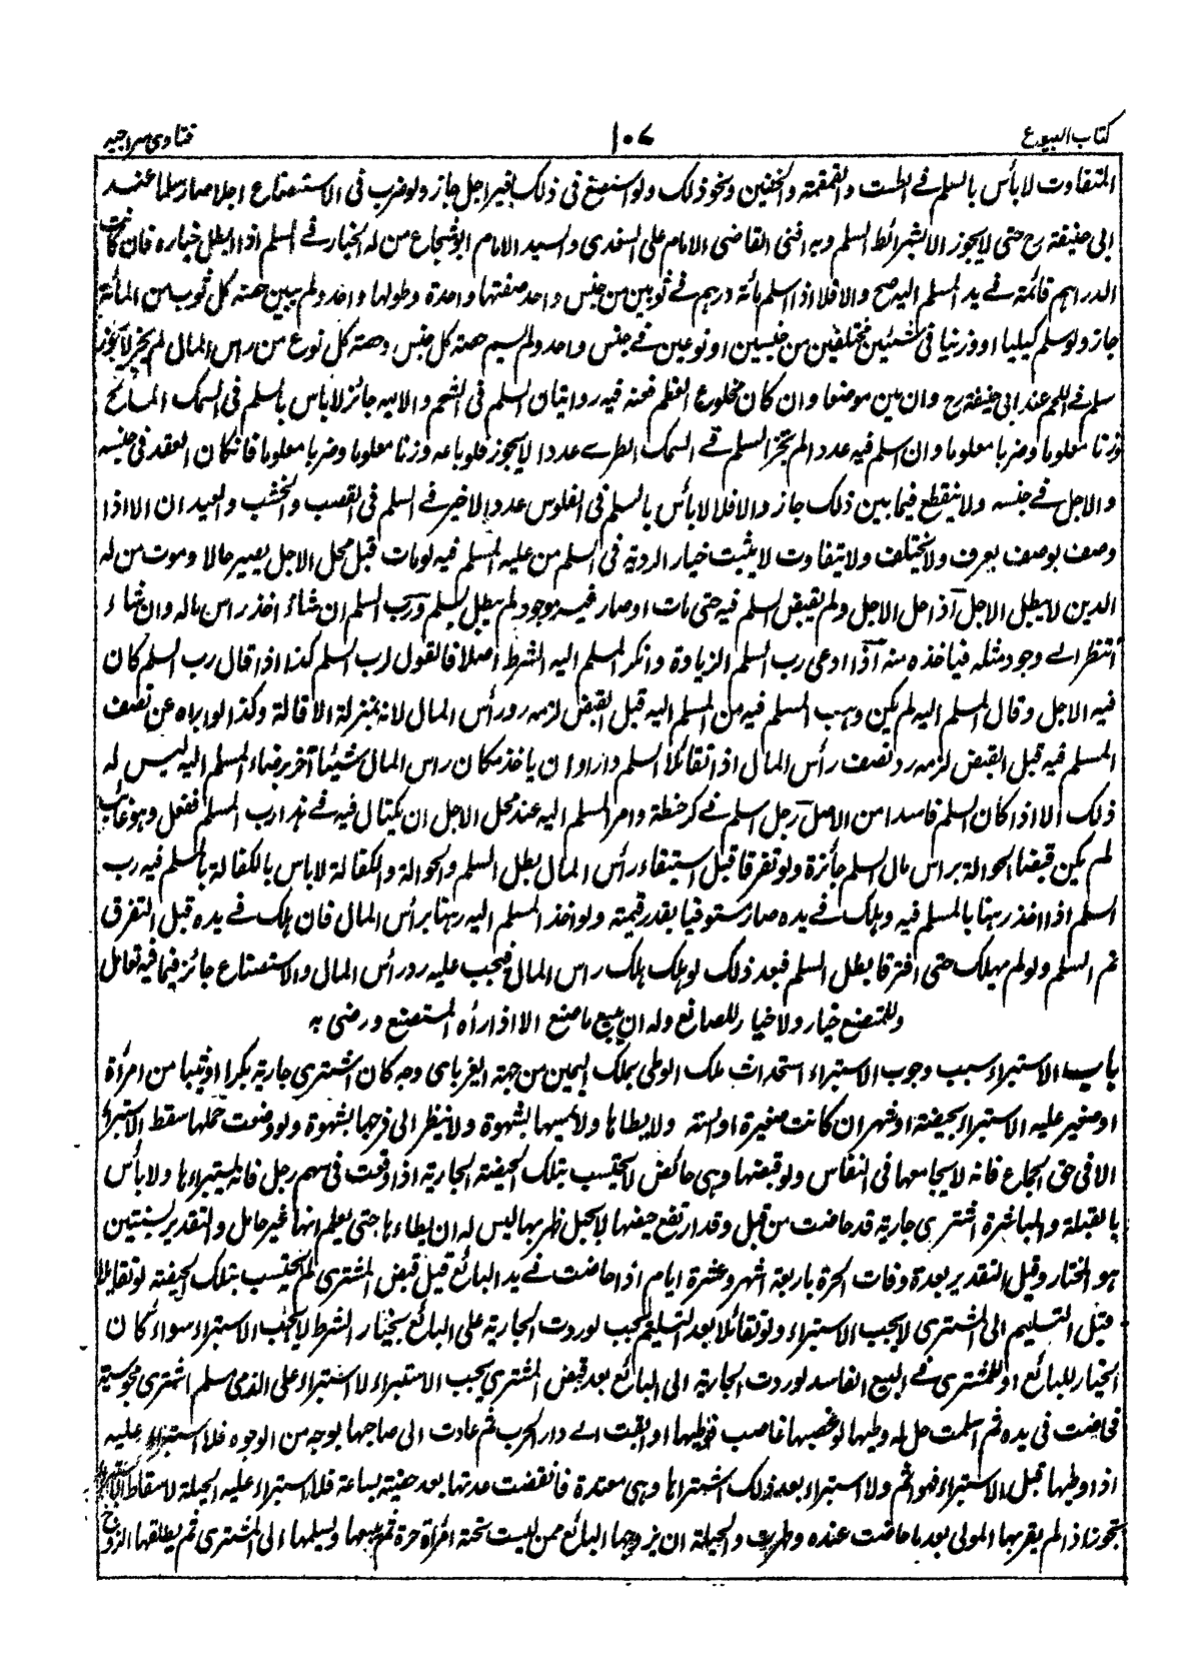 كتاب البيوع ١٠٧ فتاوى سراجيه
المتفاوت لا بأس بالسلم فى الطست والقمقمة والخفين ونحو ذلك ولو استصنع فى ذلك بغير اجل جاز ولو ضرب فى الاستصناع اجلا صار سلما عند
ابى حنيفة رح حتى لا يجوز الا بشرائط السلم وبه افتى القاضى الامام على السغدى والسيد الامام ابو شجاع من له الخيار فى السلم اذا ابطل خياره فان كانت
الدراهم قائمة فى يد المسلم اليه صح والا فلا اذا اسلم مائة درهم فى ثوبين من جنس واحد صفتها واحدة وطولها واحد ولم يبين حصة كل ثوب من المائة
جاز ولو سلم كيليا او وزنيا فى شيئين مختلفين من جنسين او نوعين فى جنس واحد ولم يسم حصة كل جنس وحصة كل نوع من راس المال لم يجز لا يجوز
سلم فى اللحم عند ابى حنيفة رح وان بين موضعا وان كان مخلوع العظم فعنه فيه روايتان السلم فى الشحم والالية جائز لا باس بالسلم فى السمك المالح
وزنا معلوما وضربا معلوما وان سلم فيه عددا لم يجز السلم فى السمك الطرى عددا لا يجوز فلو باعه وزنا معلوما وضربا معلوما فان كان العقد فى حينه
والاجل فى حينه ولا ينقطع فيما بين ذلك جاز والا فلا لا بأس بالسلم فى الفلوس عددا لا خير فى السلم فى القصب والخشب والعيدان الا اذا
وصف بوصف يعرف ولا يختلف ولا يتفاوت لا يثبت خيار الروية فى السلم من عليه المسلم فيه لو مات قبل محل الاجل يصير حالا وموت من له
الدين لا يبطل الاجل اذا حل الاجل ولم يقبض المسلم فيه حتى مات او صار غير موجود لم يبطل السلم ورب السلم ان شاء اخذ راس ماله وان شاء
انتظر الى وجود مثله فياخذه منه اذا ادعى رب السلم الزيادة وانكر المسلم اليه الشرط اصلا فالقول لرب السلم كذا اذا قال رب السلم كان
فيه الاجل وقال المسلم اليه لم يكن وهب المسلم فيه من المسلم اليه قبل القبض لزمه رد رأس المال لانه بمنزلة الاقالة وكذا لو ابراه عن نصف
المسلم فيه قبل القبض لزمه رد نصف رأس المال اذا تقائلا السلم واراد ان ياخذ مكان راس المال شيئا آخر برضاء المسلم اليه ليس له
ذلك الا اذا كان السلم فاسدا من الاصل رجل اسلم فى كر حنطة وامر المسلم اليه عند محل الاجل ان يكتال فيه فى غرائر رب السلم ففعل وهو غائب
لم يكن قبضا الحوالة براس مال السلم جائزة ولو تفرقا قبل استيفاء رأس المال بطل السلم والحوالة والكفالة لا باس بالكفالة بالمسلم فيه رب
السلم اذا اخذ رهنا بالمسلم فيه وهلك فى يده صار مستوفيا بقدر قيمته ولو اخذ المسلم اليه رهنا برأس المال فان هلك فى يده قبل التفرق
تم السلم ولو لم يهلك حتى افترقا بطل السلم فبعد ذلك لو هلك هلك براس المال فيجب عليه رد رأس المال والاستصناع جائز فيما فيه تعامل
وللمستصنع خيار ولا خيار للصانع وله ان يبيع ما صنع الا اذا رأه المستصنع ورضى به
باب الاستبراء سبب وجوب الاستبراء استحداث ملك الوطى بملك اليمين من جهة الغير باى وجه كان اشترى جارية بكرا او ثيبا من امرأة
او صغير عليه الاستبراء بحيضة او شهر ان كانت صغيرة او آئسة ولا يطاها ولا يمسها بشهوة ولا ينظر الى فرجها بشهوة ولو وضعت حملها سقط الاستبراء
الا فى حق الجماع فانه لا يجامعها فى النفاس ولو قبضها وهى حائض لا يحتسب بتلك الحيضة الجارية اذا وقعت فى سهم رجل فانه يستبراءها ولا بأس
بالقبلة والمباشرة اشترى جارية قد حاضت من قبل وقد ارتفع حيضها لا بحبل ظهر بها ليس له ان يطاءها حتى يعلم انها غير حامل والتقدير بسنتين
هو المختار وقيل التقدير بعدة وفات الحرة باربعة اشهر وعشرة ايام اذا حاضت فى يد البائع قبل قبض المشترى لم يحتسب بتلك الحيضة لو تقايلا
قبل التسليم الى المشترى لا يجب الاستبراء ولو تقائلا بعد التسليم يجب لو ردت الجارية على البائع بخيار الشرط لا يجب الاستبراء سواء كان
الخيار للبائع او للمشترى فى البيع الفاسد لو ردت الجارية الى البائع بعد قبض المشترى يجب الاستبراء لا استبراء على الذمى مسلم اشترى مجوسية
فحاضت فى يده ثم اسلمت حل له وطيها لو غصبها غاصب فوطيها او ابقت الى دار الحرب ثم عادت الى صاحبها بوجه من الوجوه فلا استبراء عليه
اذا وطيها قبل الاستبراء فهو آثم ولا استبراء بعد ذلك اشتراها وهى معتدة فانقضت عدتها بعد قبضته بساعة فلا استبراء عليه الحيلة لاسقاط الاستبراء
تجوز اذا لم يقربها المولى بعد ما حاضت عنده وطهرت والحيلة ان يزوجها البائع ممن ليست تحته امرأة حرة ثم يبيعها ويسلمها الى المشترى ثم يطلقها الزوج